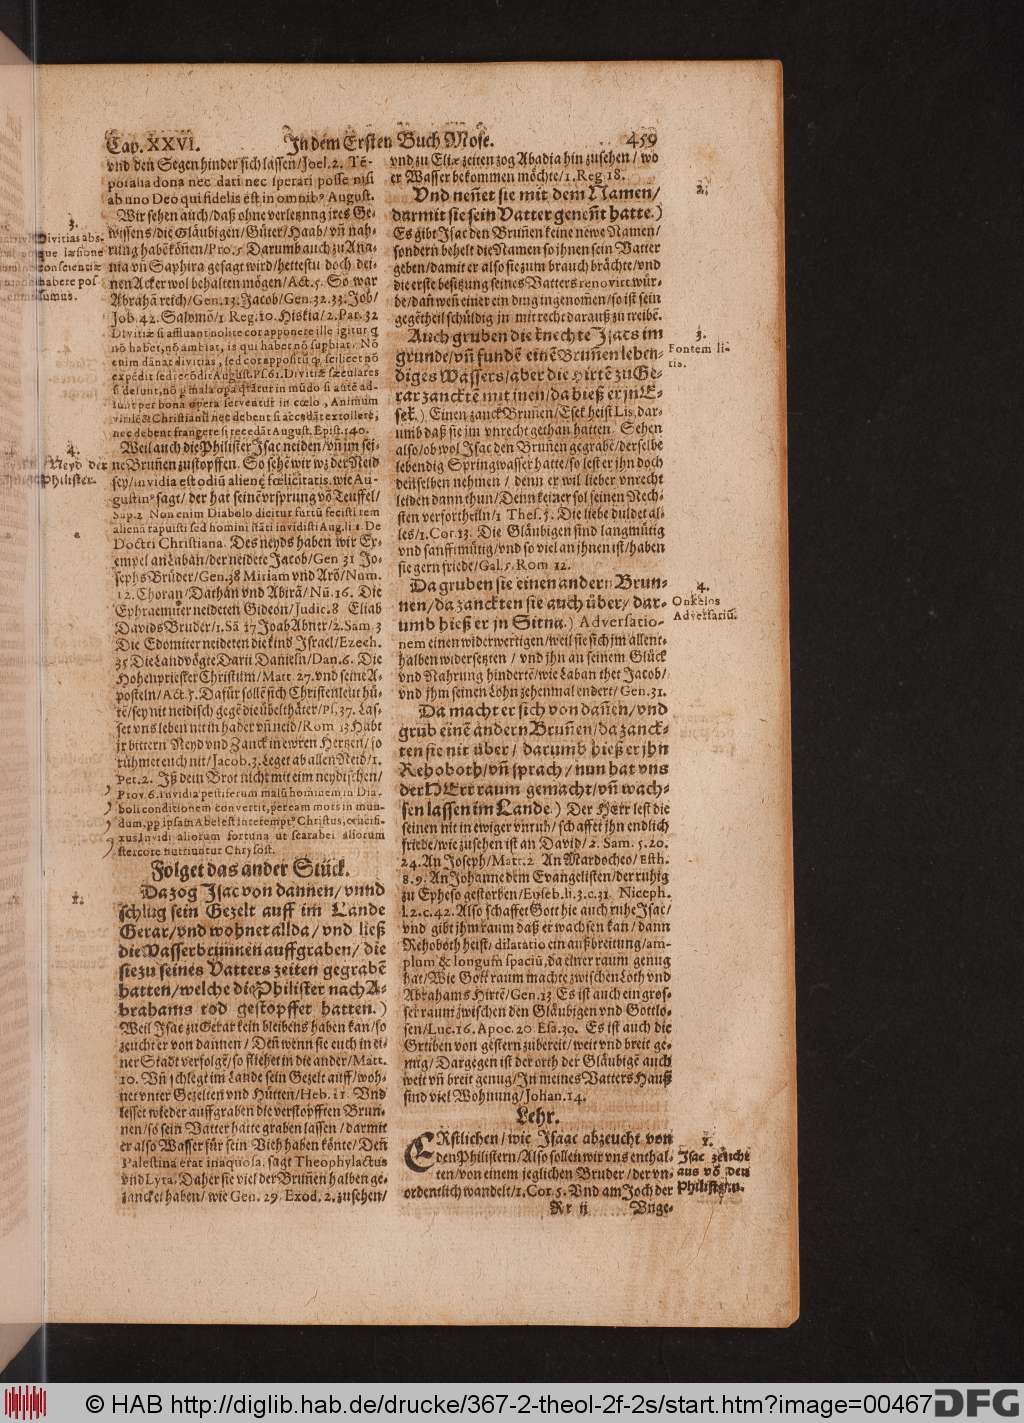 Cap. XXVI. In dem Ersten Buch Mose. 459
vnd den Segen hinder sich lassen/Joel.2. Tē-
poralia dona nec dari nec sperari posse nisi
ab uno Deo qui fidelis est in omnibꝰ August.
Wir sehen auch/daß ohne verletznng jres Ge-
wissens/die Gläubigen/Güter/Haab/vñ nah-
rung habē können/Pro.5 Darumb auch zu Ana-
nia vñ Saphira gesagt wird/hettestu doch dei-
nen Acker wol behalten mögen/Act.5. So war
Abrahā reich/Gen.13. Jacob/Gen.32.33. Job/
Job 42. Salomō/1 Reg.10. Hiskia/2. Par. 32
Divitiæ si affluant nolite cor apponere ille igitur q
nō habet, nō ambiat, is qui habet nō supbiat, Nō
enim dānat divitias, sed cor appositū
expēdit sed recōdit August. Ps. 61. Divitiæ sæculares
si desunt, nō p mala opa quærātur in mūdo si autē ad-
sunt per bona opera serventur in cœlo, Animum
virilē & Christianū nec debent si accedāt extollere,
nec debent frangere si recedāt August. Epist. 140.
Weil auch die Philister Isac neiden/vñ jm sei-
ne Brunen zustopffen. So sehē wir wz der Neid
sey/invidia est odiū alienę fœlicitatis, wie Au-
gustinꝰ sagt/ der hat seinē vrsprung vō Teuffel/
Sap.2 Non enim Diabolo dicitur furtū fecisti rem
alienā rapuisti sed homini stāti invidisti Aug. li 1. De
Doctri Christiana. Des neyds haben wir Ex-
empel an Laban/der neidete Jacob/Gen 31 Jo-
sephs Brüder/Gen.38 Miriam vnd Arō/Num.
12. Choran/Dathan vnd Abirā/Nū.16. Die
Ephraemiter neideten Gideon/Judic.8 Eliab
Davids Bruder/1.Sā 17 Joab Abner/2.Sam 3
Die Edomiter neideten die kind Israel/Ezech.
35 Die Landvögte Darii Danieln/Dan.6. Die
Hohenpriester Christum/Matt. 27. vnd seine A-
posteln/Act.5. Dafür sollē sich Christenleut hü-
tē/sey nit neidisch gegē die übelthäter/Ps.37. Las-
set vns leben nit in hader vñ neid/Rom 13 Habt
jr bittern Neyd vnd Zanck in ewren Hertzen/so
rühmet euch nit/Jacob.3. Leget ab allen Neid/1.
Pet.2. Iß dein Brot nicht mit eim neydischen/
Prov.6. Invidia pestiferum malū hominem in Dia-
boli conditionem convertit, per eam mors in mun-
dum, pp ipsam Abel est interemptꝰ Christus, crucifi-
xus, Invidi aliorum fortuna ut scarabei aliorum
stercore nutriuntur Chrysost.
Folget das ander Stück.
Da zog Isac von dannen/ vnnd
schlug sein Gezelt auff im Lande
Gerar/vnd wohnet allda/ vnd ließ
die Wasserbrunnen auffgraben/ die
sie zu seines Vatters zeiten gegrabē
hatten/welche die Philister nach A-
brahams tod gestopffet hatten.)
Weil Isac zu Gerar kein bleibens haben kan/so
zeucht er von dannen / Deñ wenn sie euch in ei-
ner Stadt verfolgē/so fliehet in die ander/Matt.
10. Vñ schlegt im Lande sein Gezelt auff/woh-
net vnter Gezelten vnd Hütten/Heb. 11 Vnd
lesset wieder auffgraben die verstopfften Brun-
nen/so sein Vatter hatte graben lassen / darmit
er also Wasser für sein Vieh haben könte/Deñ
Palestina erat inaquosa, sagt Theophylactus
vnd Lyra. Daher sie viel der Brunen halben ge-
zancket haben/ wie Gen. 29. Exod. 2. zu sehen/
3.
Divitias abs-
que læsione
conscientiæ
habere pos-
sumus.
4.
Neyd der
Philister.
1.
vnd zu Eliæ zeiten zog Abadia hin zu sehen / wo
er Wasser bekommen möchte/1.Reg 18.
Vnd neñet sie mit dem Namen/
darmit sie sein Vatter geneñt hatte.)
Es gibt Isac den Bruñen keine newe Namen/
sondern behelt die Namen so jhnen sein Vatter
geben/damit er also sie zum brauch brächte/vnd
die erste besitzung seines Vatters renovirt wür-
de/dañ weñ einer ein ding ingenomē/so ist sein
gegētheil schüldig jn mit recht darauß zu treibē.
Auch gruben die knechte Isacs im
grunde/vñ fundē einē Bruñen leben-
diges Wassers/aber die Hirtē zu Ge-
rar zancktē mit jnen/da hieß er jn E-
sek.) Einen zanck Bruñen/Esek heist Lis, dar-
umb daß sie jm vnrecht gethan hatten Sehen
also/ob wol Isac den Brunen gegrabē/derselbe
lebendig Springwasser hatte/so lest er jhn doch
denselben nehmen / denn er wil lieber vnrecht
leiden dann thun/Denn keiner sol seinen Nech-
sten verfortheiln/1 Thes.5. Die liebe duldet al-
les/1.Cor.13. Die Gläubigen sind langmütig
vnd sanfftmütig/vnd so viel an jhnen ist/haben
sie gern friede/Gal.5. Rom 12.
Da gruben sie einen andern Brun-
nen/da zanckten sie auch über/ dar-
umb hieß er jn Sitna.) Adversatio-
nem einen widerwertigen/weil sie sich jm allent-
halben widersetzten / vnd jhn an seinem Glück
vnd Nahrung hindertē/wie Laban thet Jacob/
vnd jhm seinen Lohn zehenmal endert/Gen.31.
Da macht er sich von dañen/vnd
grub einē andern Bruñen/da zanck-
ten sie nit über/ darumb hieß er jhn
Rehoboth/vñ sprach/nun hat vns
der HErr raum gemacht/vñ wach-
sen lassen im Lande.) Der Herr lest die
seinen nit in ewiger vnruh/schaffet jhn endlich
friede/wie zusehen ist an David/2. Sam. 5.20.
24. An Joseph/Matt.2 An Mardocheo/Esth.
8.9. An Johanne dem Evangelisten/der ruhig
zu Epheso gestorben/Euseb.li.3.c.31. Niceph.
l.2.c.42. Also schaffet Gott hie auch ruhe Isac/
vnd gibt jhm raum daß er wachsen kan / dann
Rehoboth heist/dilatatio ein außbreitung/am-
plum & longum spaciū, da einer raum genug
hat/Wie Gott raum machte zwischen Loth vnd
Abrahams Hirtē/Gen.13 Es ist auch ein gros-
ser raum zwischen den Gläubigen vnd Gottlo-
sen/Luc.16. Apoc.20 Esa.30. Es ist auch die
Gruben von gestern zubereit/weit vnd breit ge-
nug/Dargegen ist der orth der Gläubigē auch
weit vñ breit genug/In meines Vatters Hauß
sind viel Wohnung/Johan.14.
Lehr.
ERstlichen/wie Isaac abzeucht von
den Philistern/Also sollen wir vns enthal-
ten/von einem jeglichen Bruder/der vn-
ordentlich wandelt/1.Cor 5. Vnd am Joch der
Rr ij Vnge-
2.
3.
Fontem li-
tis.
4.
Onkelos
Adversariū.
1.
Isac zeucht
aus vō den
Philistern.
© HAB http://diglib.hab.de/drucke/367-2-theol-2f-2s/start.htm?image=00467
DFG